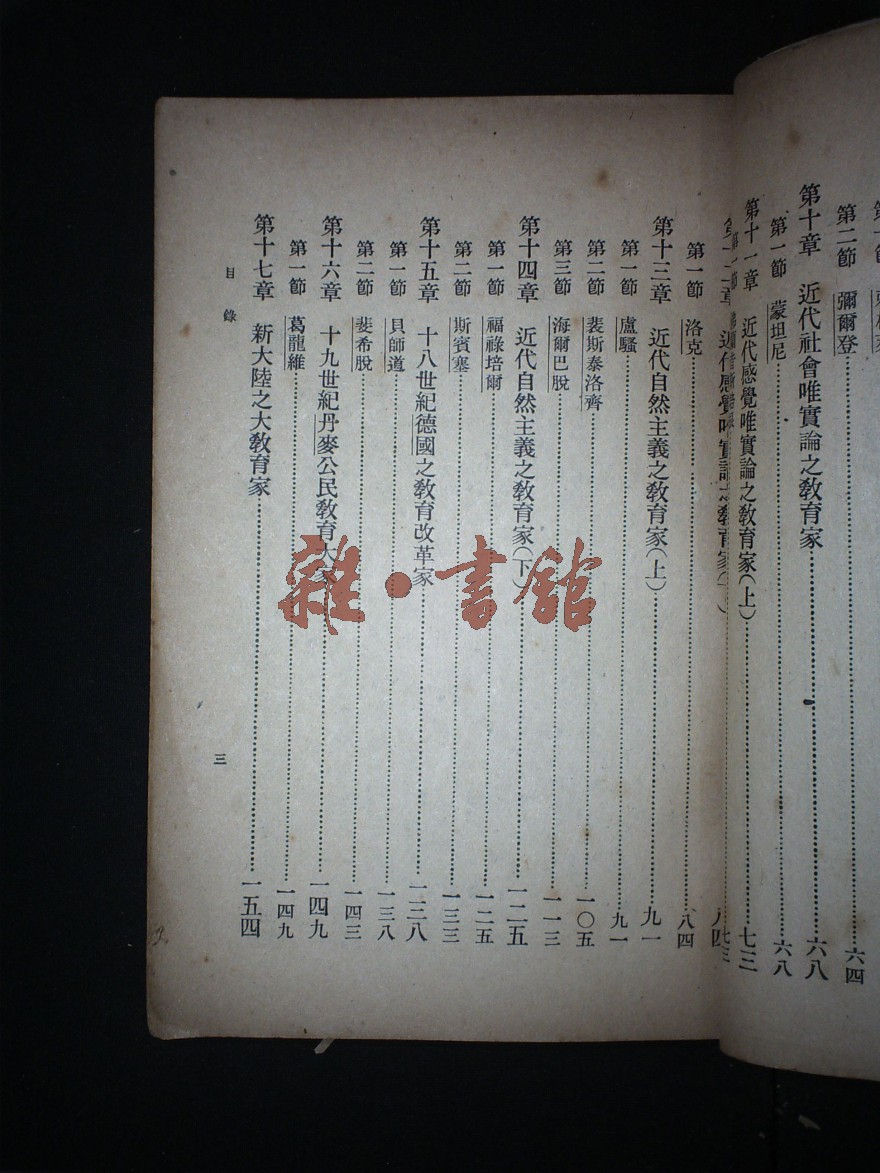 第二節 彌爾登……六四
第十章 近代社會唯實論之教育家……六八
第一節 蒙坦尼……六八
第十一章 近代感覺唯實論之教育家(上)……七三
第一節……七三
第十二章 近代感覺唯實論之教育家……八四
第一節 洛克……八四
第十三章 近代自然主義之教育家(上)……九一
第一節 盧騷……九一
第二節 裴斯泰洛齊……一〇五
第三節 海爾巴脫……一一三
第十四章 近代自然主義之教育家(下)……一二五
第一節 福祿培爾……一二五
第二節 斯賓塞……一三三
第十五章 十八世紀德國之教育改革家……一三八
第一節 貝師道……一三八
第二節 斐希脫……一四三
第十六章 十九世紀丹麥公民教育大家……一四九
第一節 葛龍維……一四九
第十七章 新大陸之大教育家……一五四
目錄
三
雜·書館